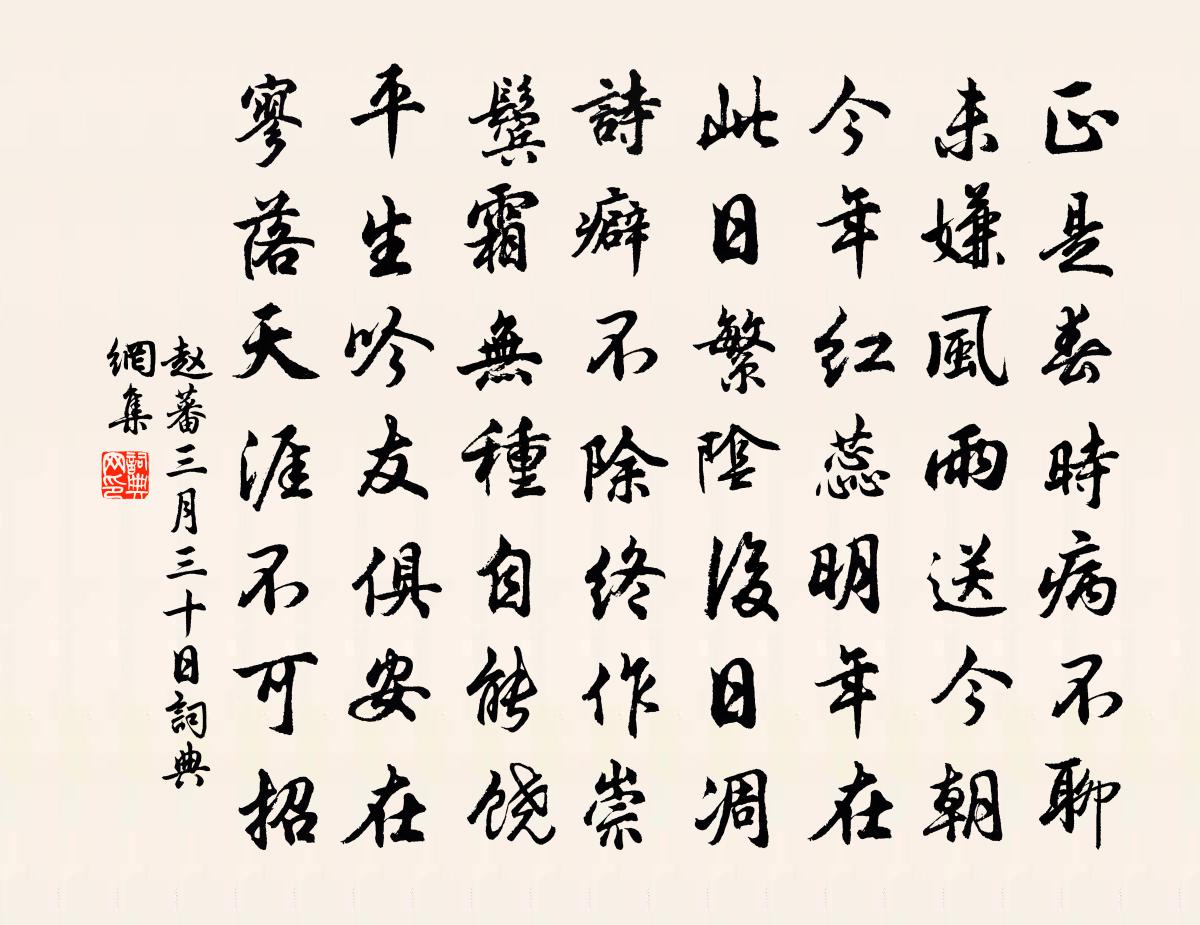 正是春時病不聊
未嫌風雨送今朝
今年紅蕊明年在
此日繁陰後日凋
詩癖不除終作崇
鬢霜無種自能饶
平生吟友俱安在
寥落天涯不可招
赵蕃三月三十日詞典
網集
詞典
网印